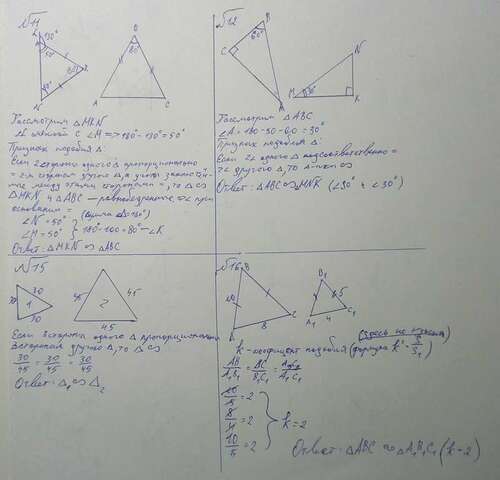 №11
130°
50°
80°
50°
M
K
N
B
80°
A
C
Рассмотрим △MKN
∠M => 180° - 130° = 50°
Признак подобия △:
Если 2 стороны одного △ пропорциональны
= 2м сторонам другого △, и углы, заключённые
между этими сторонами =, то △ ∞
△MKN и △ABC — равнобедренные => ∠ при
основании =
∠N = 50°
∠M = 50°
(сумма ∠△=180°)
180° - 100 = 80° - ∠K
Ответ: △MKN ∞ △ABC
№12
B
60°
C
A
N
M
30°
K
Рассмотрим △ABC
∠A = 180 - 90 - 60 = 30°
Признак подобия △:
Если 2∠ одного △ соответственно =
2∠ другого △, то
Ответ: △ABC ∞ △MNK (∠30° и ∠30°)
№15
30
30
1
30
45
2
45
45
Если 3 стороны одного △ пропорциональны
3 сторонам другого △, то △ ∞
30/45 = 30/45 = 30/45
Ответ: △1 ∞ △2
№16
B
10
A
8
C
B1
5
A1
4
C1
(здесь не нужна)
k - коэффициент подобия (формула
AB/A1B1 = BC/B1C1 = AC/A1C1
10/5 = 2
8/4 = 2
10/5 = 2
k = 2
Ответ: △ABC ∞ △A1B1C1 (k - 2)